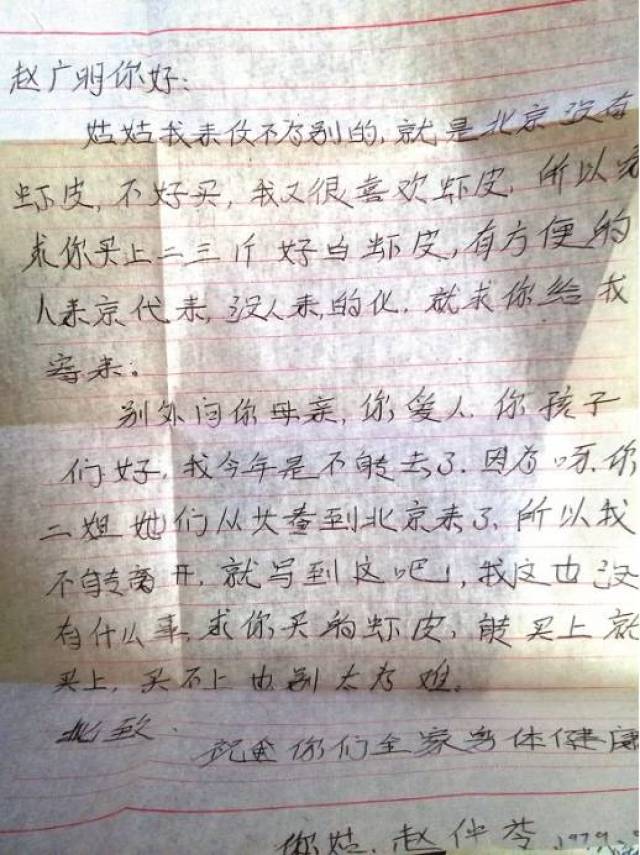 赵广明你好:
姑姑我来仅不为别的,就是北京没有
虾皮,不好买,我又很喜欢虾皮,所以
求你买上二三斤好白虾皮,有方便的
人来京代来,没人来的化,就求你给我
寄来。
别外问你母亲,你爱人,你孩子
们好,我今年是不能去了.因为呀,你
二姐她们从长春到北京来了,所以我
不能离开,就写到这吧!,我这也没
有什么事,求你买的虾皮,能买上就
买上,买不上也别太为难。
此致.
祝全你们全家身体健康
你姑.赵仲苓 1979